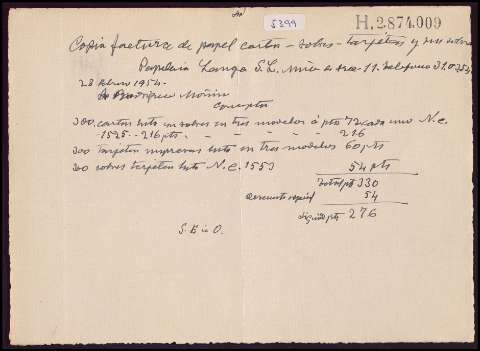 5399
H.2.874.009
Copia factura de papel cartas - sobres - tarjetas y sus sobres
Papeleria Langa S.L. 11. Telefono 310354
28 1954.
Dn Rodriguez Moñino
Conceptos
300 cartas con sobres en tres modelos a pts 72 cada uno N.C.
1525 - 216 pts - - - - - 216
300 tarjetas impresas en tres modelos 60 pts
300 sobres tarjetas N.C. 1553 54 pts
Total pts 330
descuento especial 54
liquido pts 276
S. E. u O.